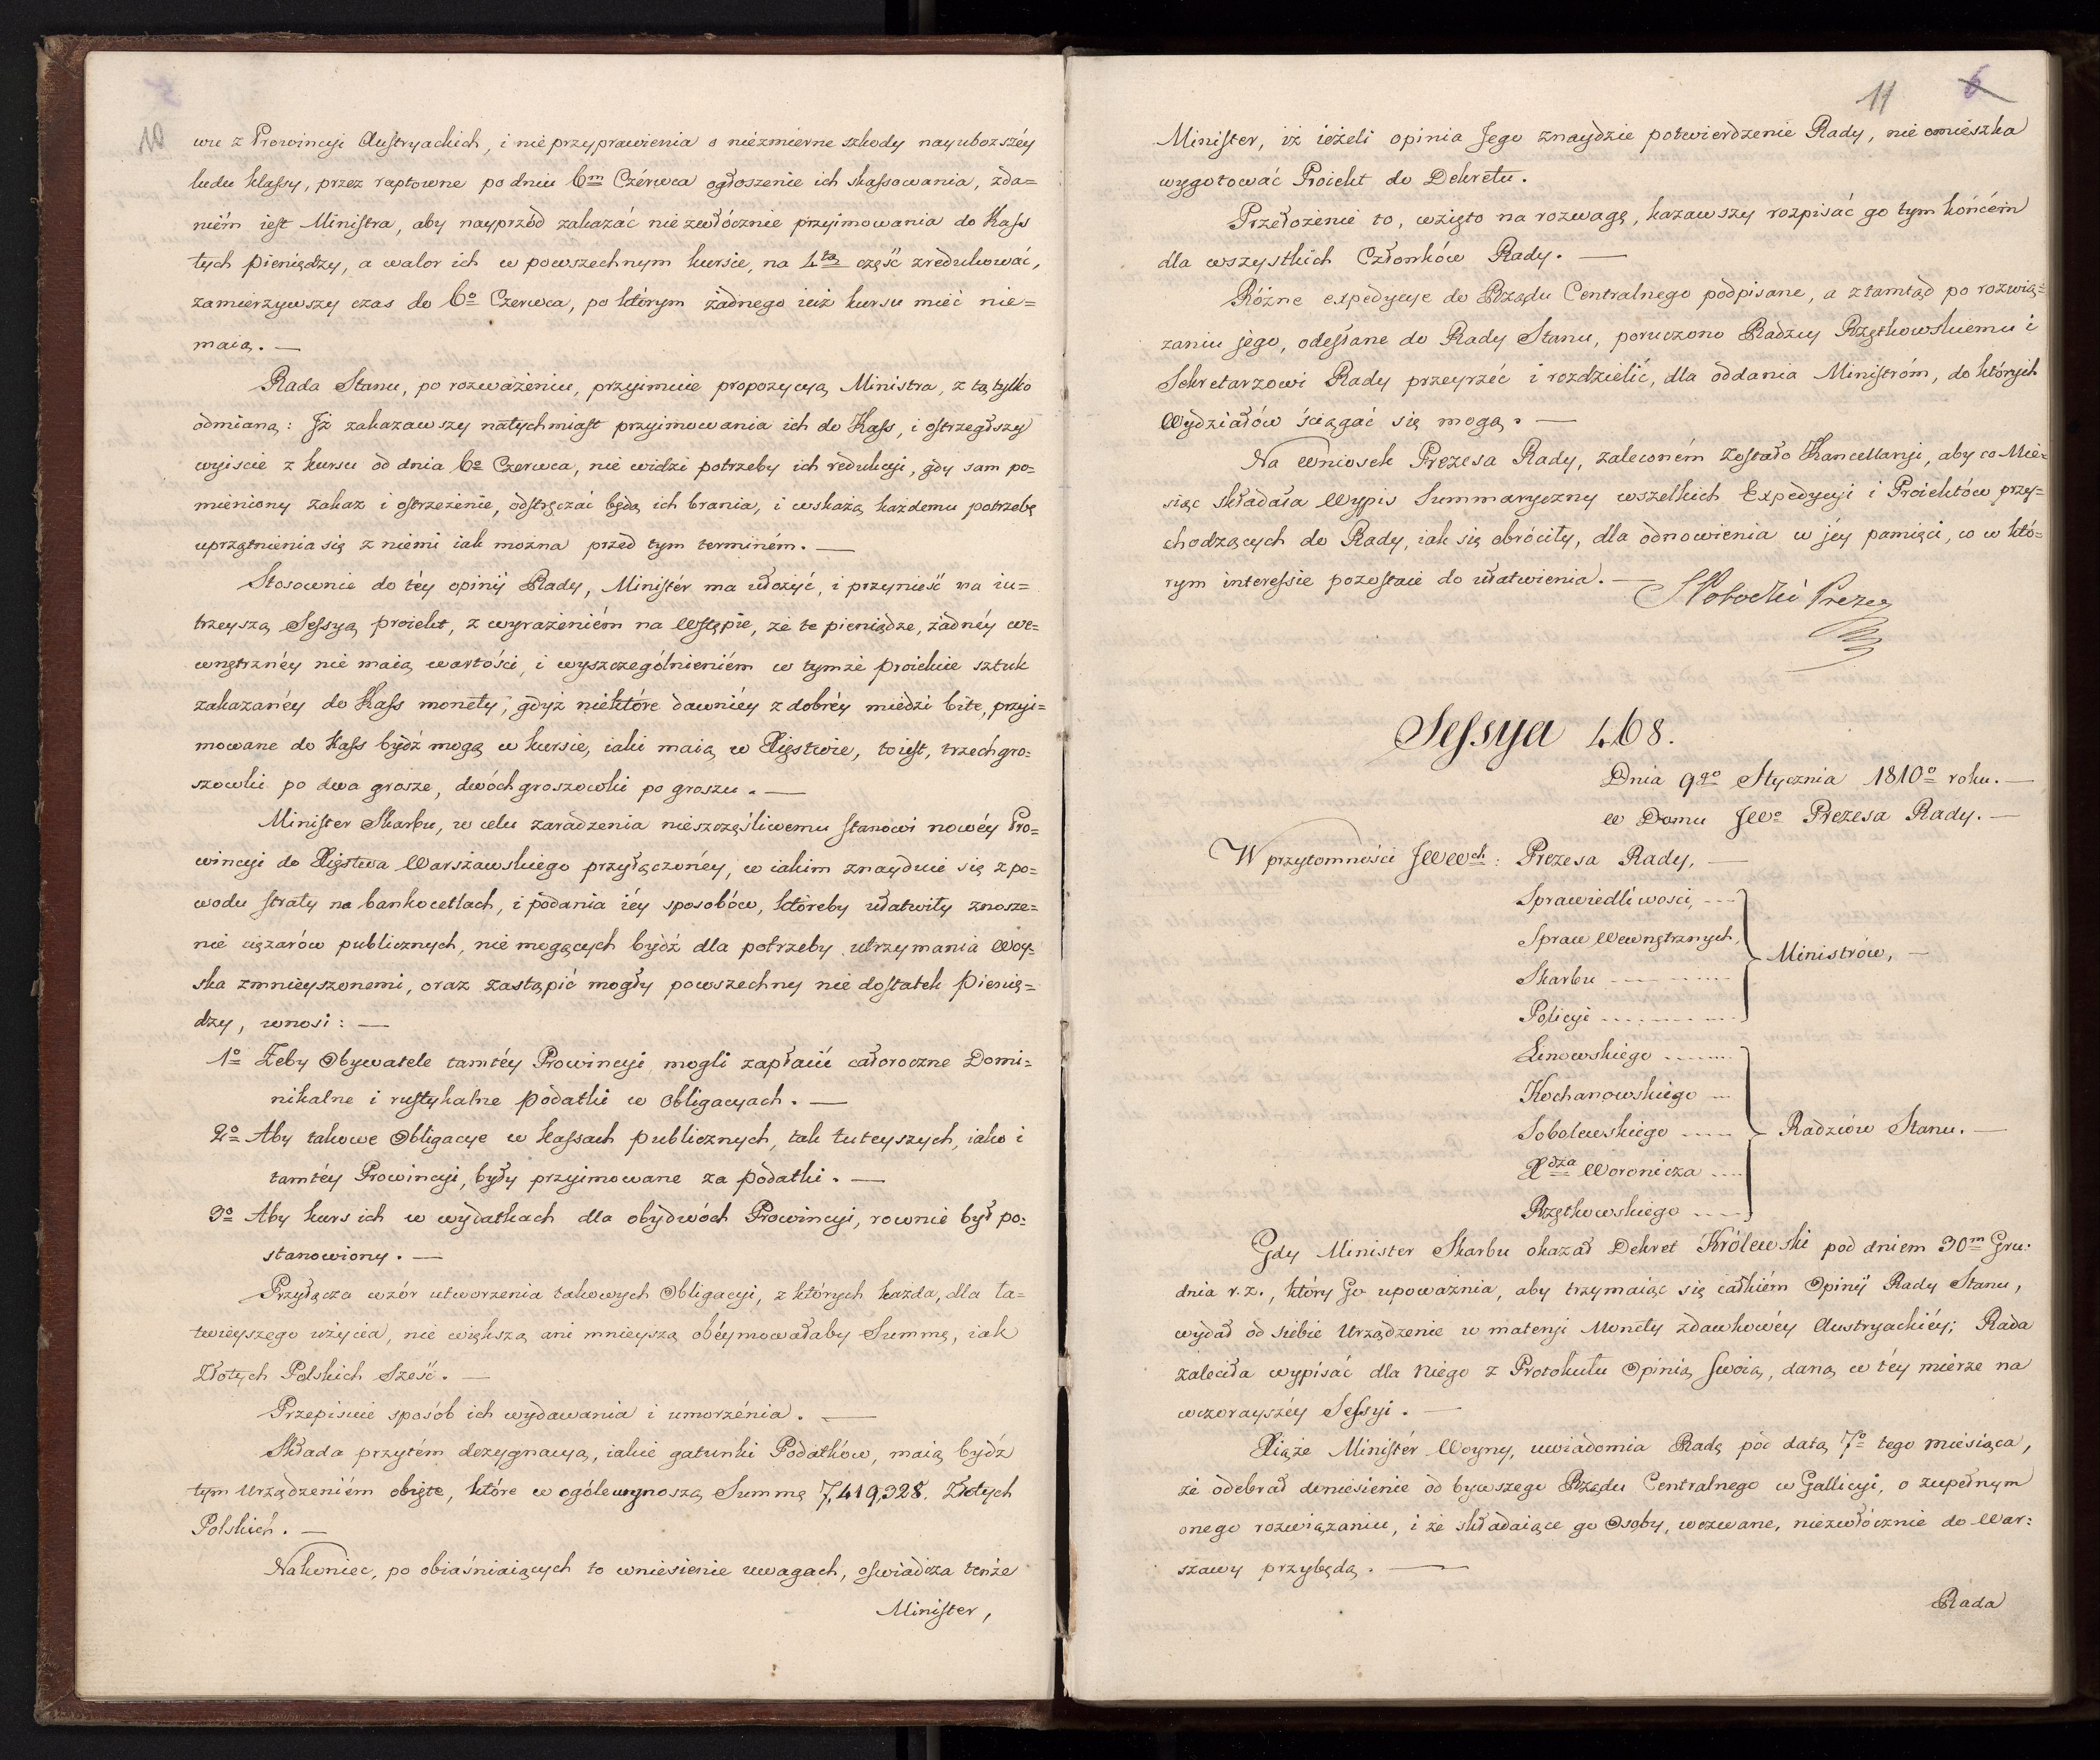 10
wu z Prowincyi Austryackich, i nie przyprawienia o niezmierne szkody nayubozszéy
ludu klassy, przez raptowne po dniu 6m Czérwca ogłoszenie ich skassowania, zda=
niém iest Ministra, aby nayprzód zakazać niezwłócznie przyimowania do Kass
tych pieniędzy, a walor ich w powszechnym kursie, na 4tą część zredukować,
zamierzywszy czas do 6o Czerwca, po którym żadnego iuż kursu mieć nie=
maią. —
Rada Stanu, po rozważeniu, przyimuie propozycyą Ministra, z tą tylko
odmianą: Iż zakazawszy natychmiast przyimowania ich do Kass, i ostrzegłszy
wyiscie z kursu od dnia 6o Czerwca, nie widzi potrzeby ich redukcyi, gdy sam po=
mieniony zakaz i ostrzeżenie, odstręczać będą ich brania, i wskażą każdemu potrzebę
uprzątnienia się z niemi iak można przed tym terminém. —
Stosownie do téy opinij Rady, Ministér ma ułożyć, i przynieść na iu=
trzeyszą Sessyą proiekt, z wyrażeniém na Wstępie, że te pieniądze, żadnéy we=
wnętrznéy nie maią wartości, i wyszczególnieniém w tymże proiekcie sztuk
zakazanéy do Kass monéty, gdyż niektóre dawniéy z dobréy miedzi bite, przyi=
mowane do Kass bydź mogą w kursie, iaki maią w Xięstwie, toiest, trzechgro=
szowki po dwa grosze, dwóchgroszowki po groszu. —
Minister Skarbu, w celu zaradzenia nieszczęśliwemu stanowi nowéy Pro=
wincyi do Xięstwa Warszawskiego przyłączonéy, w iakim znayduie się z po=
wodu straty na bankocetlach, i podania iéy sposobów, któreby ułatwiły znosze=
nie ciężarów publicznych, nie mogących bydź dla potrzeby utrzymania Woy=
ska zmnieyszonemi, oraz zastąpić mogły powszechny nie dostatek pienię=
dzy, wnosi: —
1o Żeby Obywatele tamtéy Prowincyi mogli zapłacić całoroczne Domi=
nikalne i rustykalne podatki w Obligacyach. —
2o Aby takowe Obligacye w kassach publicznych, tak tuteyszych, iako i
tamtéy Prowincyi, były przyimowane za podatki. —
3o Aby kurs ich w wydatkach dla obydwóch Prowincyi, rownie był po=
stanowiony. —
Przyłącza wzór utworzenia takowych Obligacyi, z których każda, dla ła=
twieyszego użycia, nie większą ani mnieyszą obéymowałaby Summę, iak
Złotych Polskich Sześć. —
Przepisuie sposób ich wydawania i umorzénia. —
Składa przytém dezygnacyą, iakie gatunki Podatków, maią bydź
tym Urządzeniém obięte, które w ogóle wynoszą Summę 7,419,328. Złotych
Polskich. —
Nakoniec, po obiaśniaiących to wniesienie uwagach, oświadcza tenże
Minister,
11 6
Minister, iż ieżeli opinia Jego znaydzie potwierdzenie Rady, nie omieszka
wygotować Proiekt do Dekretu.
Przełożenie to, wzięto na rozwagę, kazawszy rozpisać go tym końcém
dla wszystkich Członków Rady. —
Różne expedycye do Rządu Centralnego podpisane, a ztamtąd po rozwią=
zaniu jego, odesłane do Rady Stanu, poruczono Radzcy Rzętkowskiemu i
Sekretarzowi Rady przeyrzéć i rozdzielić, dla oddania Ministróm, do których
Wydziałów ściągać się mogą. —
Na Wniosek Prezesa Rady, zaleconém zostało Kancellaryi, aby co Mie=
siąc składała Wypis Summaryczny wszelkich Expedycyi i Proiektów przy=
chodzących do Rady, iak się obróciły, dla odnowienia w jéy pamięci, co w któ=
rym interessie pozostaie do ułatwienia. —
S Potocki Prezes
Sessya 468.
Dnia 9go Stycznia 1810o roku. —
w Domu JWo Prezesa Rady. —
W przytomności JWWch: Prezesa Rady, —
Sprawiedliwości, ---
Spraw Wewnętrznych,
Ministrów, —
Skarbu ---
Policyi ---
Linowskiego ---
Kochanowskiego ---
Sobolewskiego ---
Radzców Stanu. —
Xdza Woronicza ---
Rzętkowskiego ---
Gdy Minister Skarbu okazał Dekret Królewski pod dniem 30m Gru:
dnia r. z., który Go upoważnia, aby trzymaiąc się całkiém Opinij Rady Stanu,
wydał od siebie Urządzenie w materyi Monéty zdawkowéy Austryackiéy; Rada
zaleciła wypisać dla Niego z Protokułu Opinią swoią, daną w téy mierze na
wczorayszéy Sessyi. —
Xiąże Ministér Woyny, uwiadomia Radę pod datą 7o tego miesiąca,
że odebrał doniesienie od bywszego Rządu Centralnego w Gallicyi, o zupełnym
onego rozwiązaniu, i że składaiące go Osoby, wezwane, niezwłócznie do War:
szawy przybędą. —
Rada